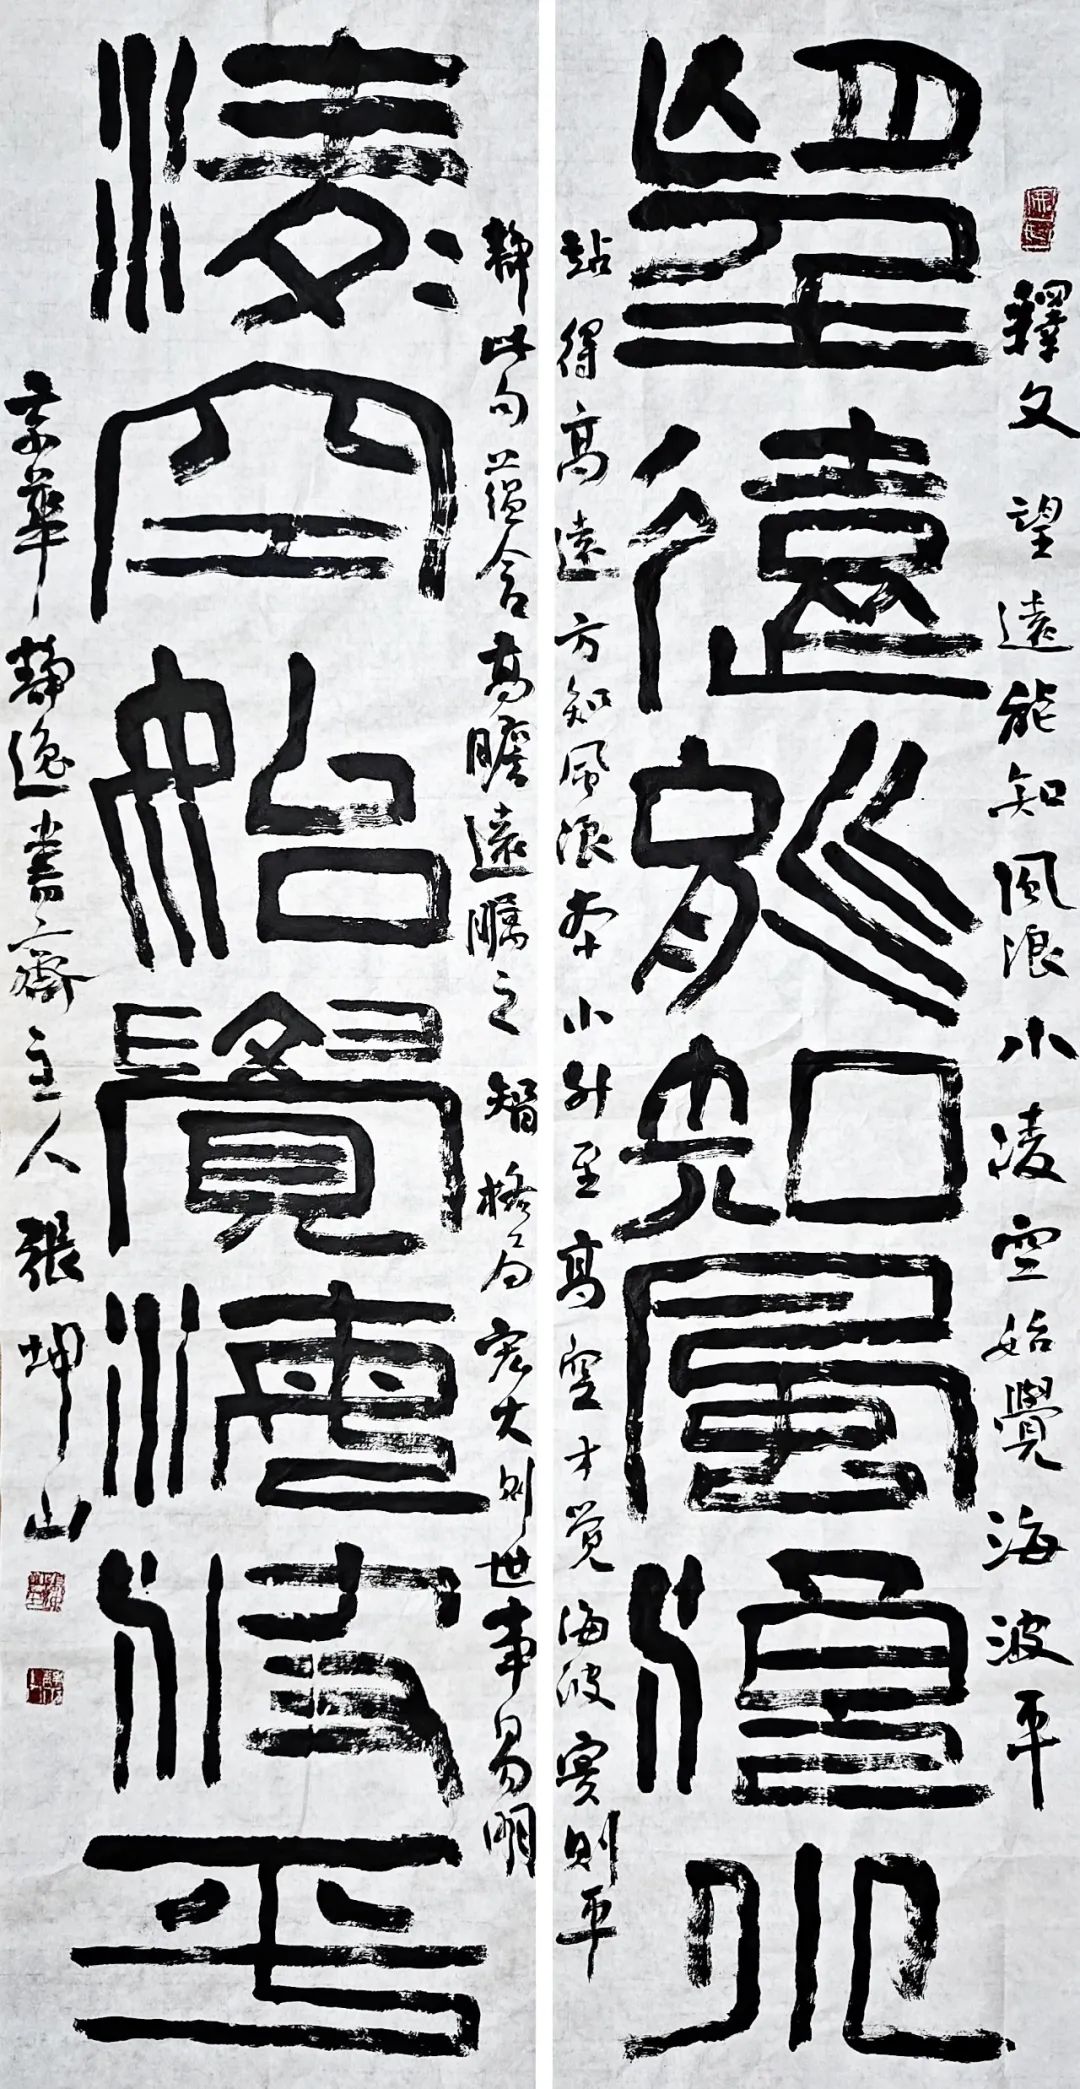 釋文 望遠能知風浪小 凌空始覺海波平
望遠能知風浪小
站得高遠方知風浪本小 升至高空才觉海波实則平
静 此句蕴含高瞻遠瞩之智 格局宏大則世事易明
凌空始覺海波平
京華静逸書齋主人張坤山